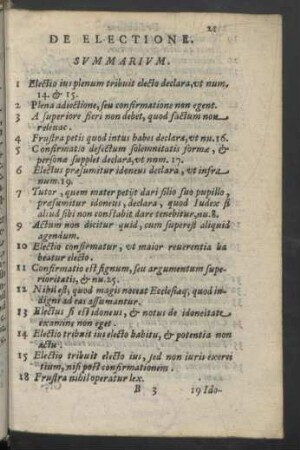 21
DE ELECTIONE.
SVMMARIVM.
1 Electio ius plenum tribuit electo declara, vt num.
14. & 15.
2 Plena adiectione, seu confirmatione non egent.
3 A superiore fieri non debet, quod factum non
releuat.
4 Frustra petis quod intus habes declara, vt nu. 16.
5 Confirmatio defectum solemnitatis formæ, &
personæ supplet declara, vt num. 17.
6 Electus præsumitur idoneus declara, vt infra
num. 19.
7 Tutor, quem mater petijt dari filio suo pupillo,
præsumitur idoneus, declara, quod Iudex si
aliud sibi non constabit dare tenebitur, nu. 8.
9 Actum non dicitur quid, cum superest aliquid
agendum.
10 Electio confirmatur, vt maior reuerentia ha
beatur electo.
11 Confirmatio est signum, seu argumentum supe-
rioritatis, & nu. 25.
12 Nihil est, quod magis noceat Ecclesiæ, quod in-
digni ad eas assumantur.
13 Electus si est idoneus, & notus de idoneitate
examine non eget.
14 Electio tribuit ius electo habitu, & potentia non
actu.
15 Electio tribuit electo ius, sed non iuris exerci
tium, nisi post confirmationem.
18 Frustra nihil operatur lex.
B 3 19 Ido-